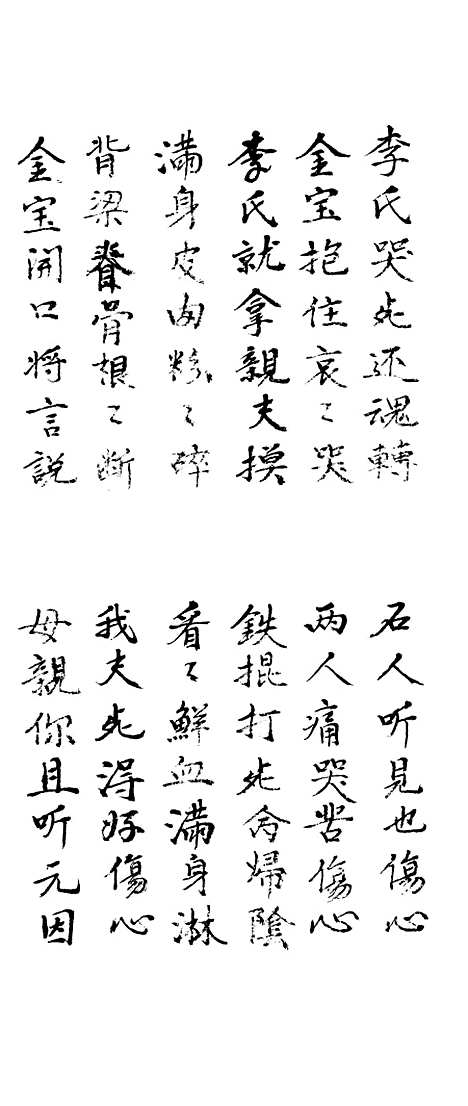 李氏哭死还魂轉
石人听見也傷心
金宝抱住哀〻哭
两人痛哭苦傷心
李氏就拿親夫摸
鉄掍打死命歸陰
滿身皮肉粉〻碎
看〻鮮血滿身淋
背梁脊骨根〻断
我夫死得好傷心
金宝開口将言説
母親你且听元因